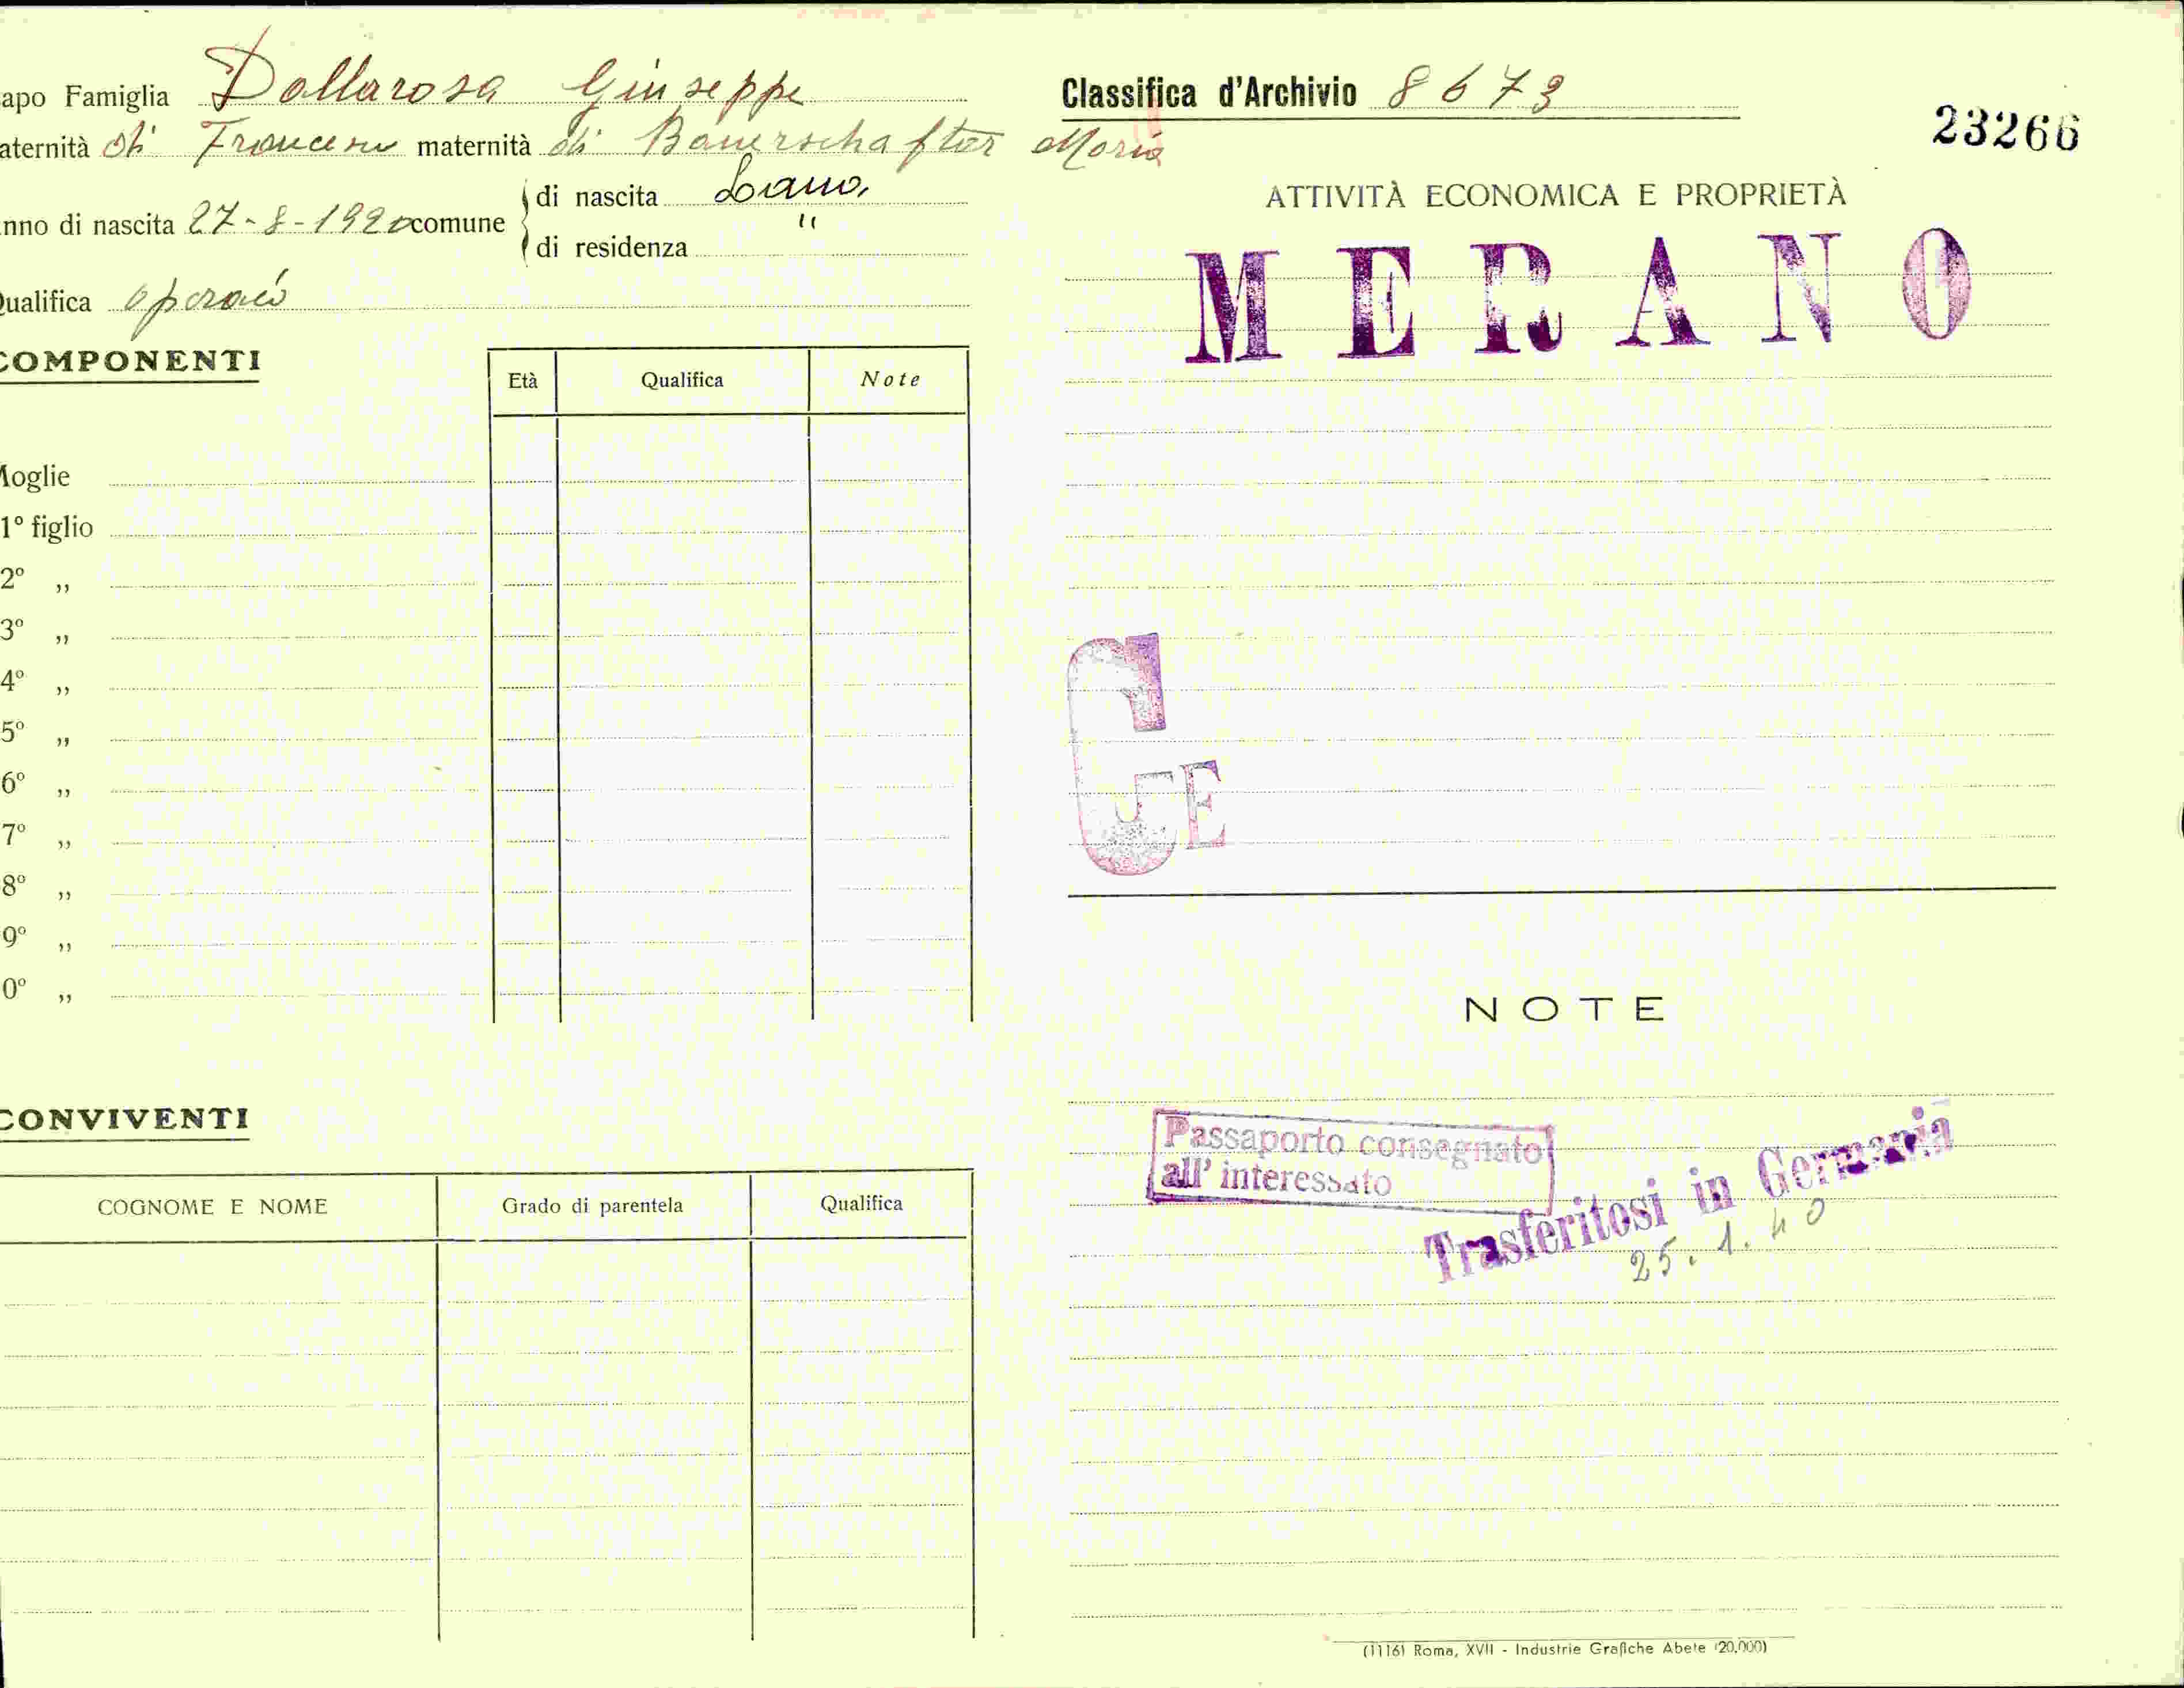 apo Famiglia Dallarosa Giuseppe
aternità di Francesco maternità di Bauerschafter Maria
nno di nascita 27-8-1920 comune
di nascita Lana
di residenza "
Qualifica operaio
COMPONENTI
Età Qualifica Note
Moglie
1º figlio
2º ,,
3º ,,
4º ,,
5º ,,
6º ,,
7º ,,
8º ,,
9º ,,
0º ,,
CONVIVENTI
COGNOME E NOME Grado di parentela Qualifica
Classifica d'Archivio 8673
23266
ATTIVITÀ ECONOMICA E PROPRIETÀ
MERANO
G E
NOTE
Passaporto consegnato
all' interessato
Trasferitosi in Germania
25.1.40
(1116) Roma, XVII - Industrie Grafiche Abete (20.000)